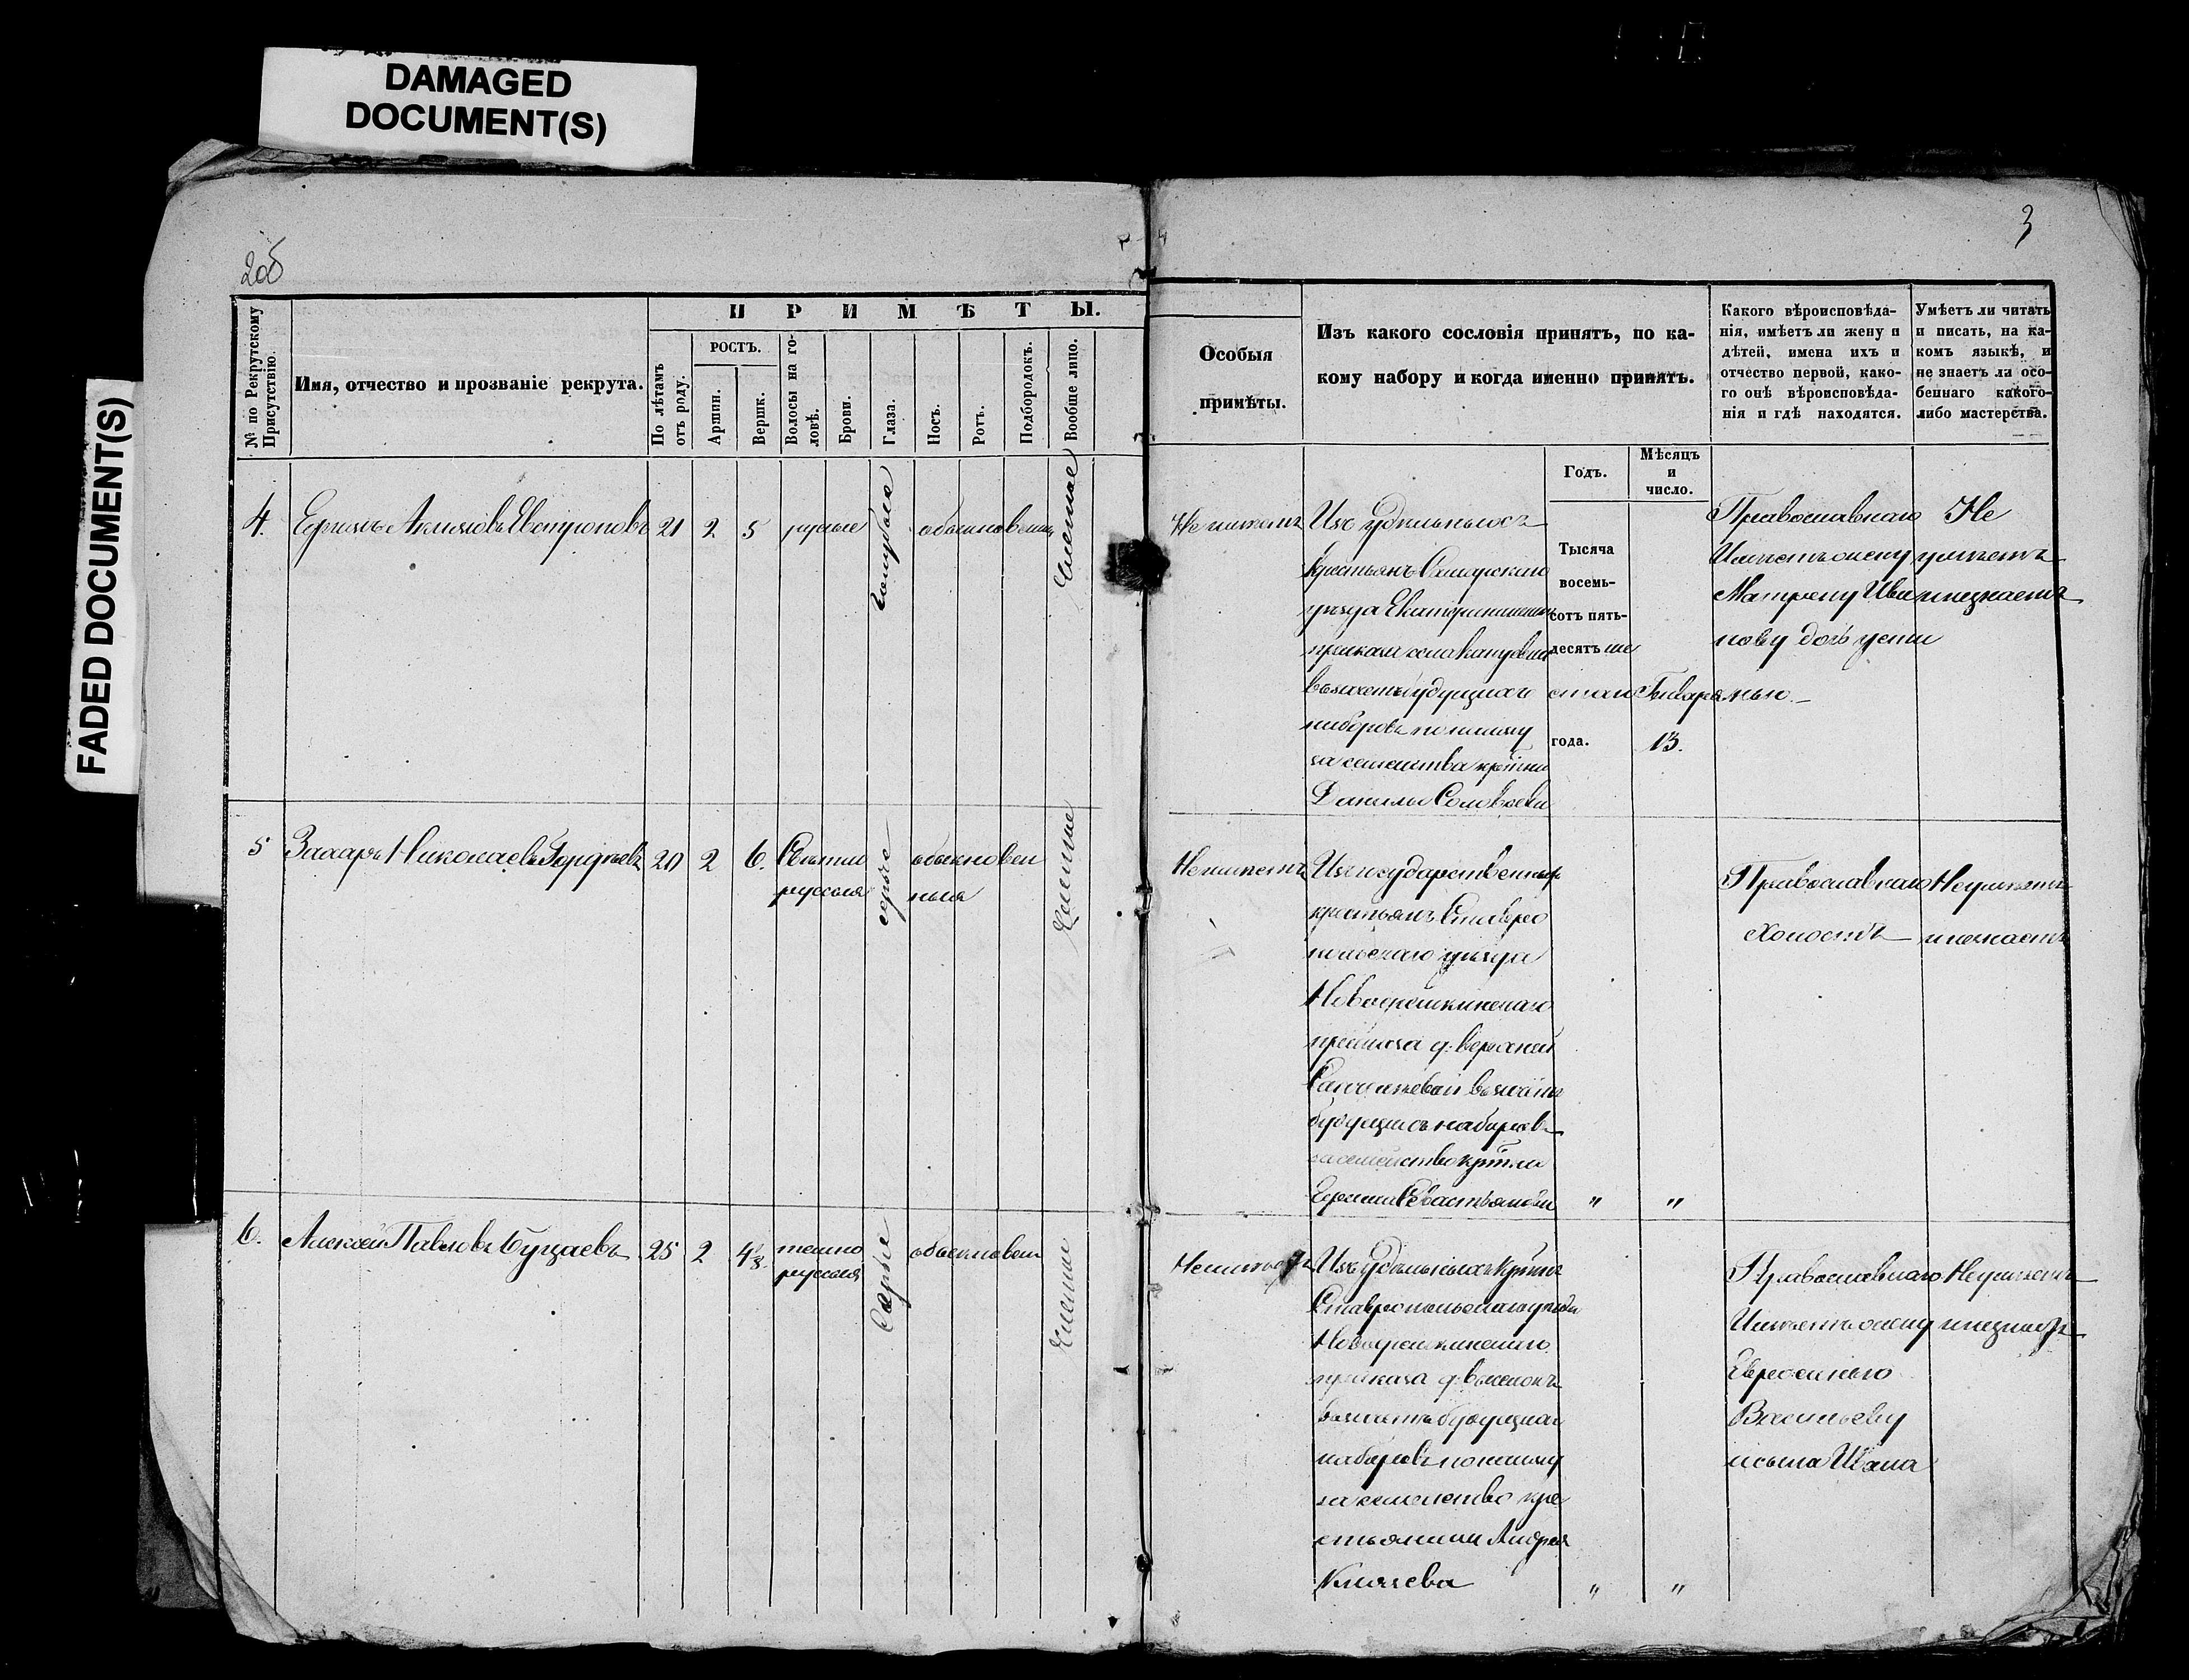 DAMAGED
DOCUMENT(S)
FADED DOCUMENT(S)
2об
3
№ по Рекрутскому Присутствію.
Имя, отчество и прозваніе рекрута.
ПРИМѢТЫ.
По лѣтамъ отъ роду.
РОСТЪ.
Аршин.
Вершк.
Волосы на головѣ.
Брови.
Глаза.
Носъ.
Ротъ.
Подбородокъ.
Вообще лицо.
Особыя
примѣты.
Изъ какого сословія принятъ, по ка-
кому набору и когда именно принятъ.
Годъ.
Мѣсяцъ
и
число.
Какого вѣроисповѣда-
нія, имѣетъ ли жену и
дѣтей, имена ихъ и
отчество первой, како-
го онѣ вѣроисповѣда-
нія и гдѣ находятся.
Умѣетъ ли читать
и писать, на ка-
комъ языкѣ, и
не знаетъ ли осо-
беннаго какого-
либо мастерства.
4. 21 2 5 русые голубые обыкновенн чистое
Изъ удѣльныхъ
крестьянъ Самарскаго
уѣзда
приказа села
въ зачетъ будущихъ
наборовъ по найму
за семейства
Данилы Соловьева
Тысяча
восемь-
сотъ пять-
десятъ ше
стаго Генваря
года. 13.
Православнаго
Имѣетъ жену
Матрену Ива
нову дочь
Не
умѣетъ
и незнаетъ
5 Захаръ Николаевъ Гордѣевъ 20 2 6. Свѣтло сѣрые обыкновен чистое
русыя ныя
Изъ государственныхъ
крестьянъ Ставро
польскаго уѣзда
приказа д. Верхней
будущихъ наборовъ
за семейство
Севастьянова " "
Православнаго
Холостъ
Неумѣетъ
и незнаетъ
6. Алексей Павловъ 25 2 4 темно Сѣрые обыкновен чистое
русыя
Изъ удѣльныхъ
Ставропольскаго уѣзда
приказа д.
въ зачетъ будущихъ
наборовъ по найму
за семейство кре
стьянина Андрея
Князева " "
Православнаго
Имѣетъ жену
Васильеву
и сына Ивана
Неумѣетъ
и незнаетъ